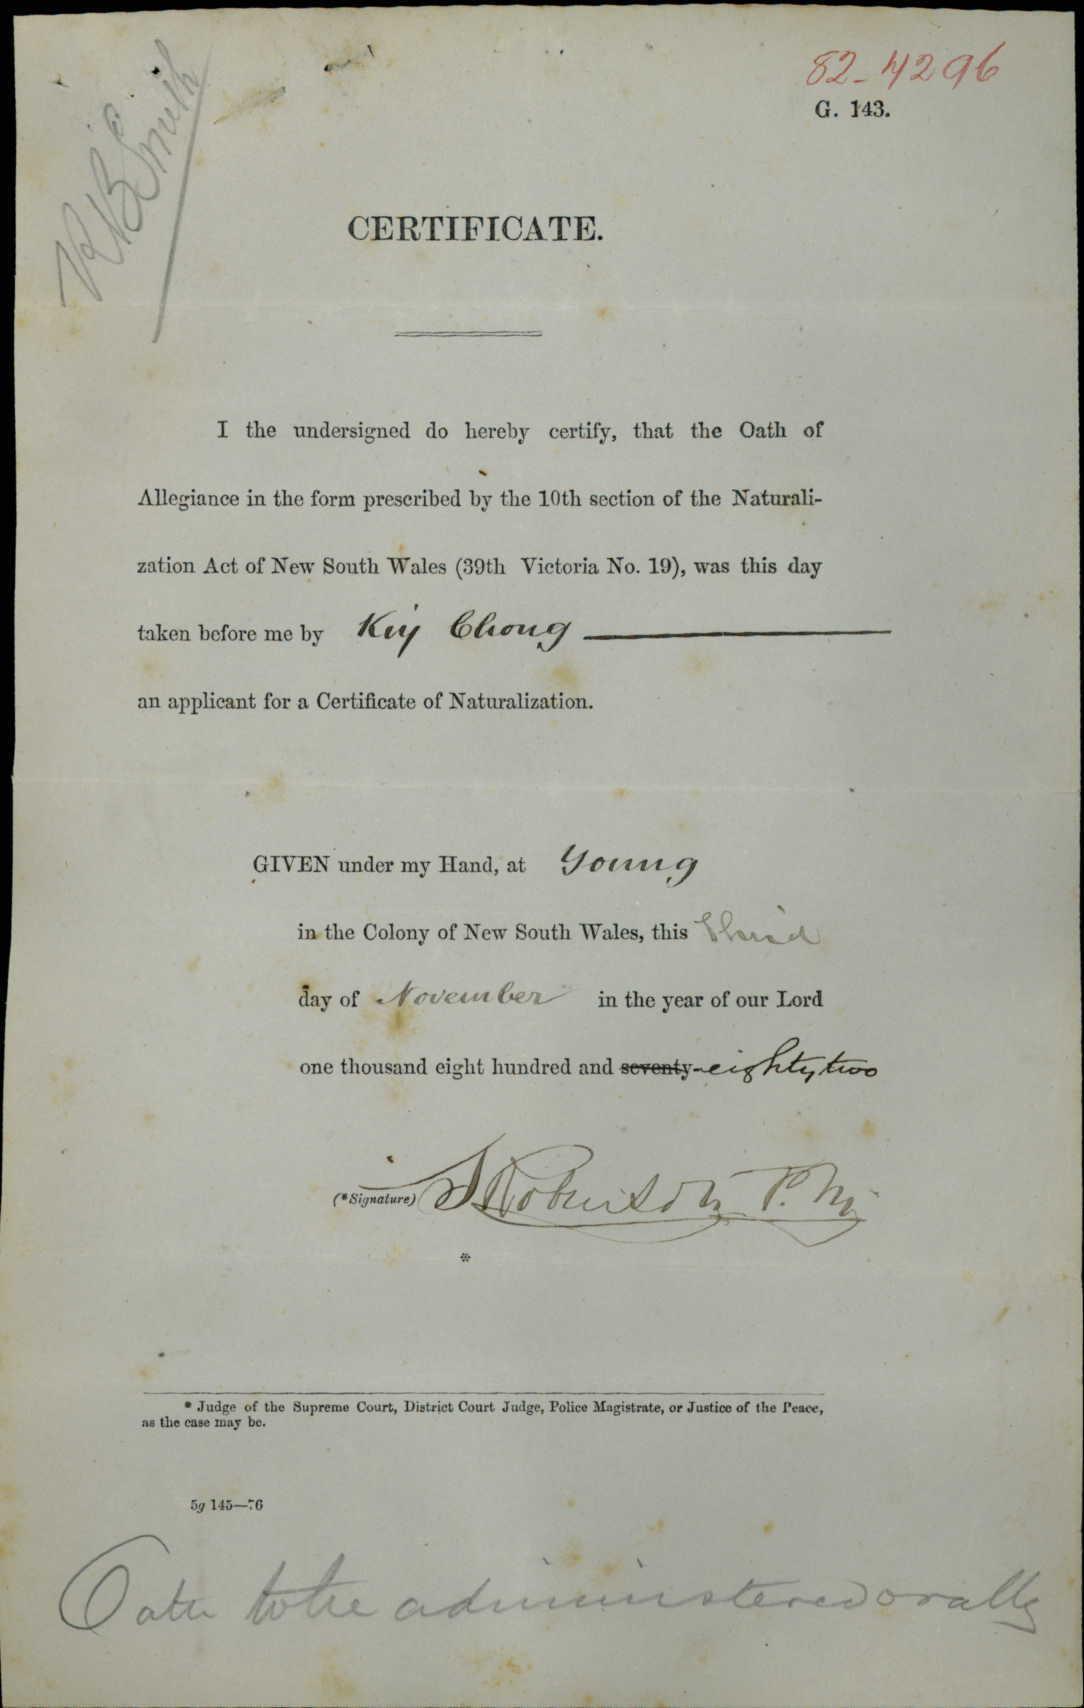 82-4296
G. 143.
R B Smith
CERTIFICATE.
I the undersigned do hereby certify, that the Oath of
Allegiance in the form prescribed by the 10th section of the Naturali-
zation Act of New South Wales (39th Victoria No. 19), was this day
taken before me by Kiy Chong
an applicant for a Certificate of Naturalization.
GIVEN under my Hand, at Young
in the Colony of New South Wales, this Third
day of November in the year of our Lord
one thousand eight hundred and seventy-eighty two
(*Signature) Robinson P.M.
*
* Judge of the Supreme Court, District Court Judge, Police Magistrate, or Justice of the Peace,
as the case may be.
5g 145—76
Oath to be administered orally